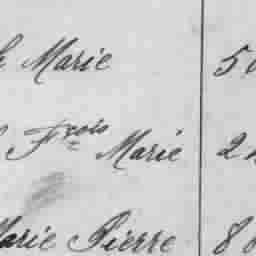 Marie 5
Fçois Marie 2
Marie Pierre 8